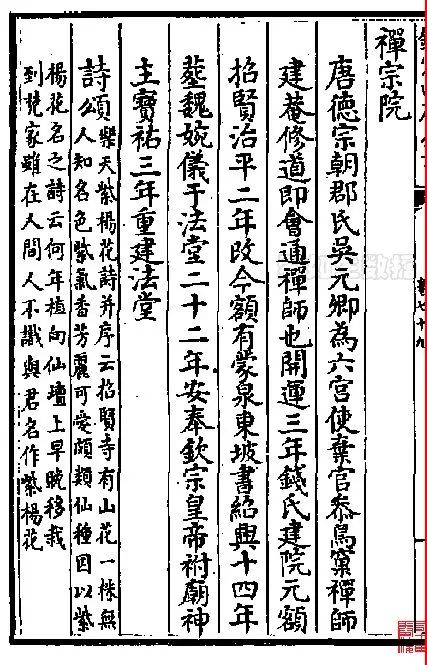 禪宗院
唐德宗朝郡氏吳元卿為六宮使棄官叅鳥窠禪師
建菴修道即會通禪師也開運三年錢氏建院元額
招賢治平二年改今額有蒙泉東坡書紹興十四年
葬魏婉儀于法堂二十二年安奉欽宗皇帝祔廟神
主寶祐三年重建法堂
詩頌樂天紫楊花詩并序云招賢寺有山花一株無
人知名色紫氣香芳麗可愛頗類仙種因以紫
楊花名之詩云何年植向仙壇上早晚移栽
到梵家雖在人間人不識與君名作紫楊花